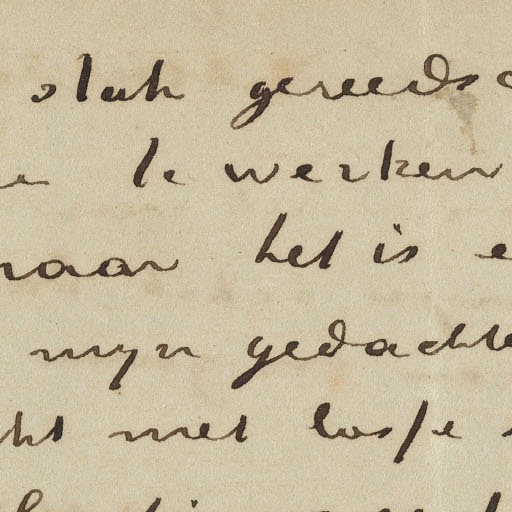 stuk gereeds
te werken
maar het is e
mijn gedachte
cht met losse